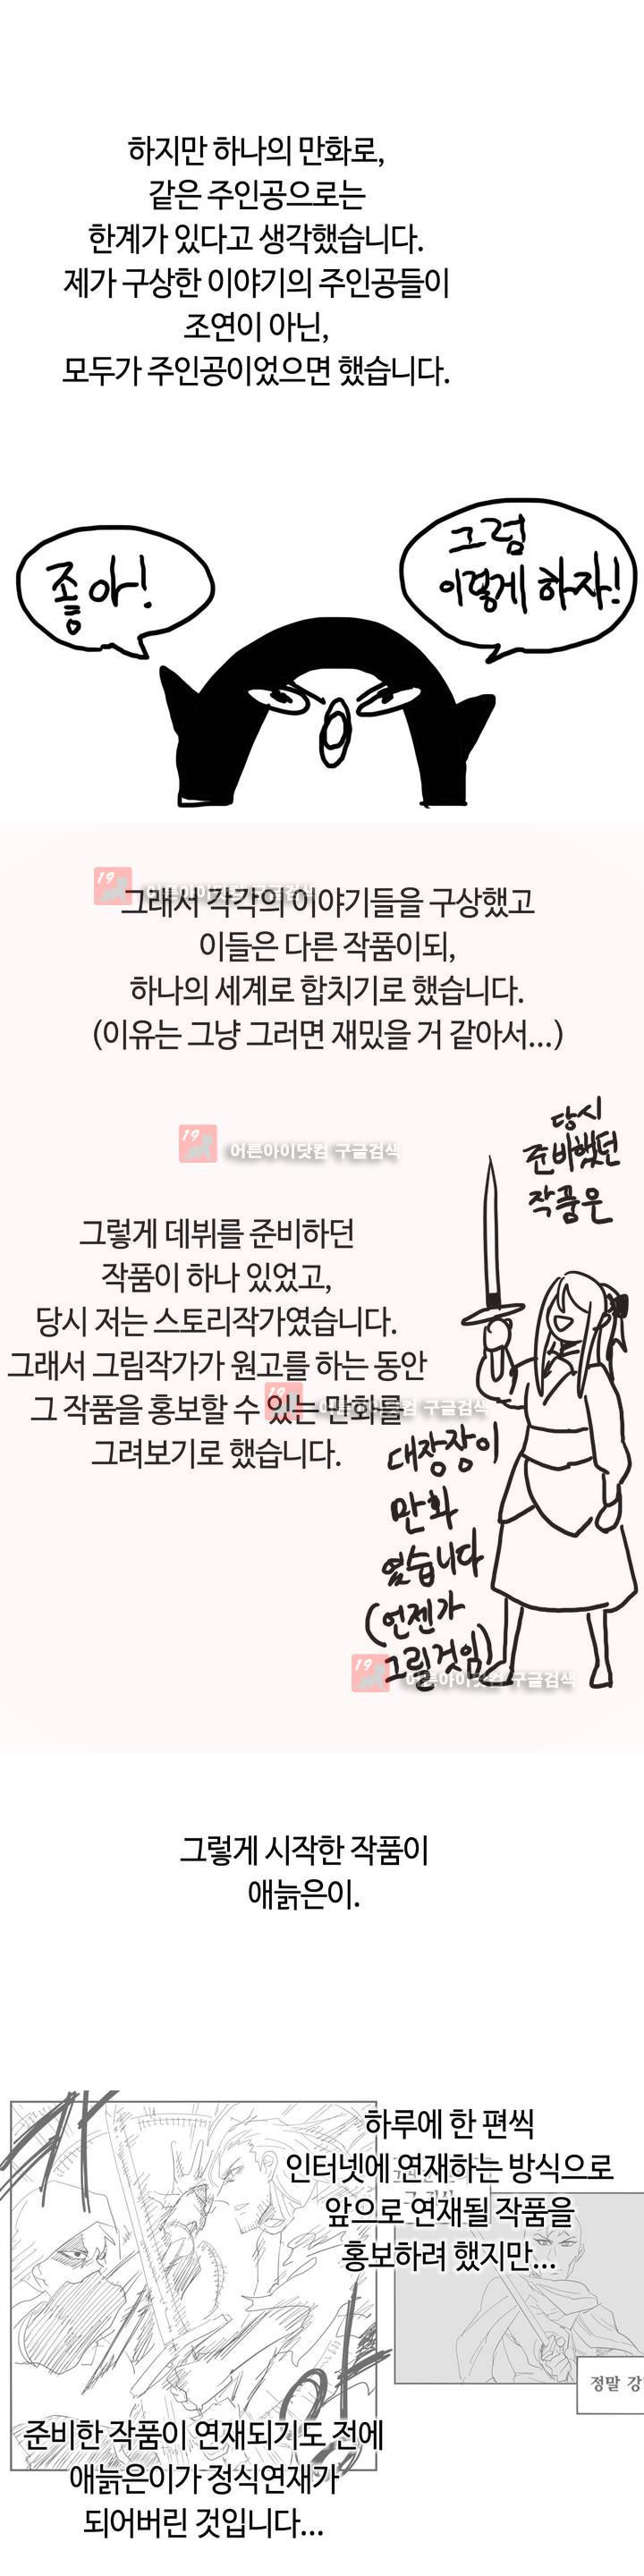 하지만 하나의 만화로,
같은 주인공으로는
한계가 있다고 생각했습니다.
제가 구상한 이야기의 주인공들이
조연이 아닌,
모두가 주인공이었으면 했습니다.
좋아!
그럼
이렇게 하자!
19 어른아이닷컴 구글검색
그래서 각각의 이야기들을 구상했고
이들은 다른 작품이되,
하나의 세계로 합치기로 했습니다.
(이유는 그냥 그러면 재밌을 거 같아서...)
당시
준비했던
작품은
19 어른아이닷컴 구글검색
그렇게 데뷔를 준비하던
작품이 하나 있었고,
당시 저는 스토리작가였습니다.
그래서 그림작가가 원고를 하는 동안
그 작품을 홍보할 수 있는 만화를
19 어른아이닷컴 구글검색
그려보기로 했습니다.
대장장이
만화
였습니다
(언젠가
그릴것임)
19 어른아이닷컴 구글검색
그렇게 시작한 작품이
애늙은이.
하루에 한 편씩
인터넷에 연재하는 방식으로
앞으로 연재될 작품을
홍보하려 했지만...
정말 강
준비한 작품이 연재되기도 전에
애늙은이가 정식연재가
되어버린 것입니다...